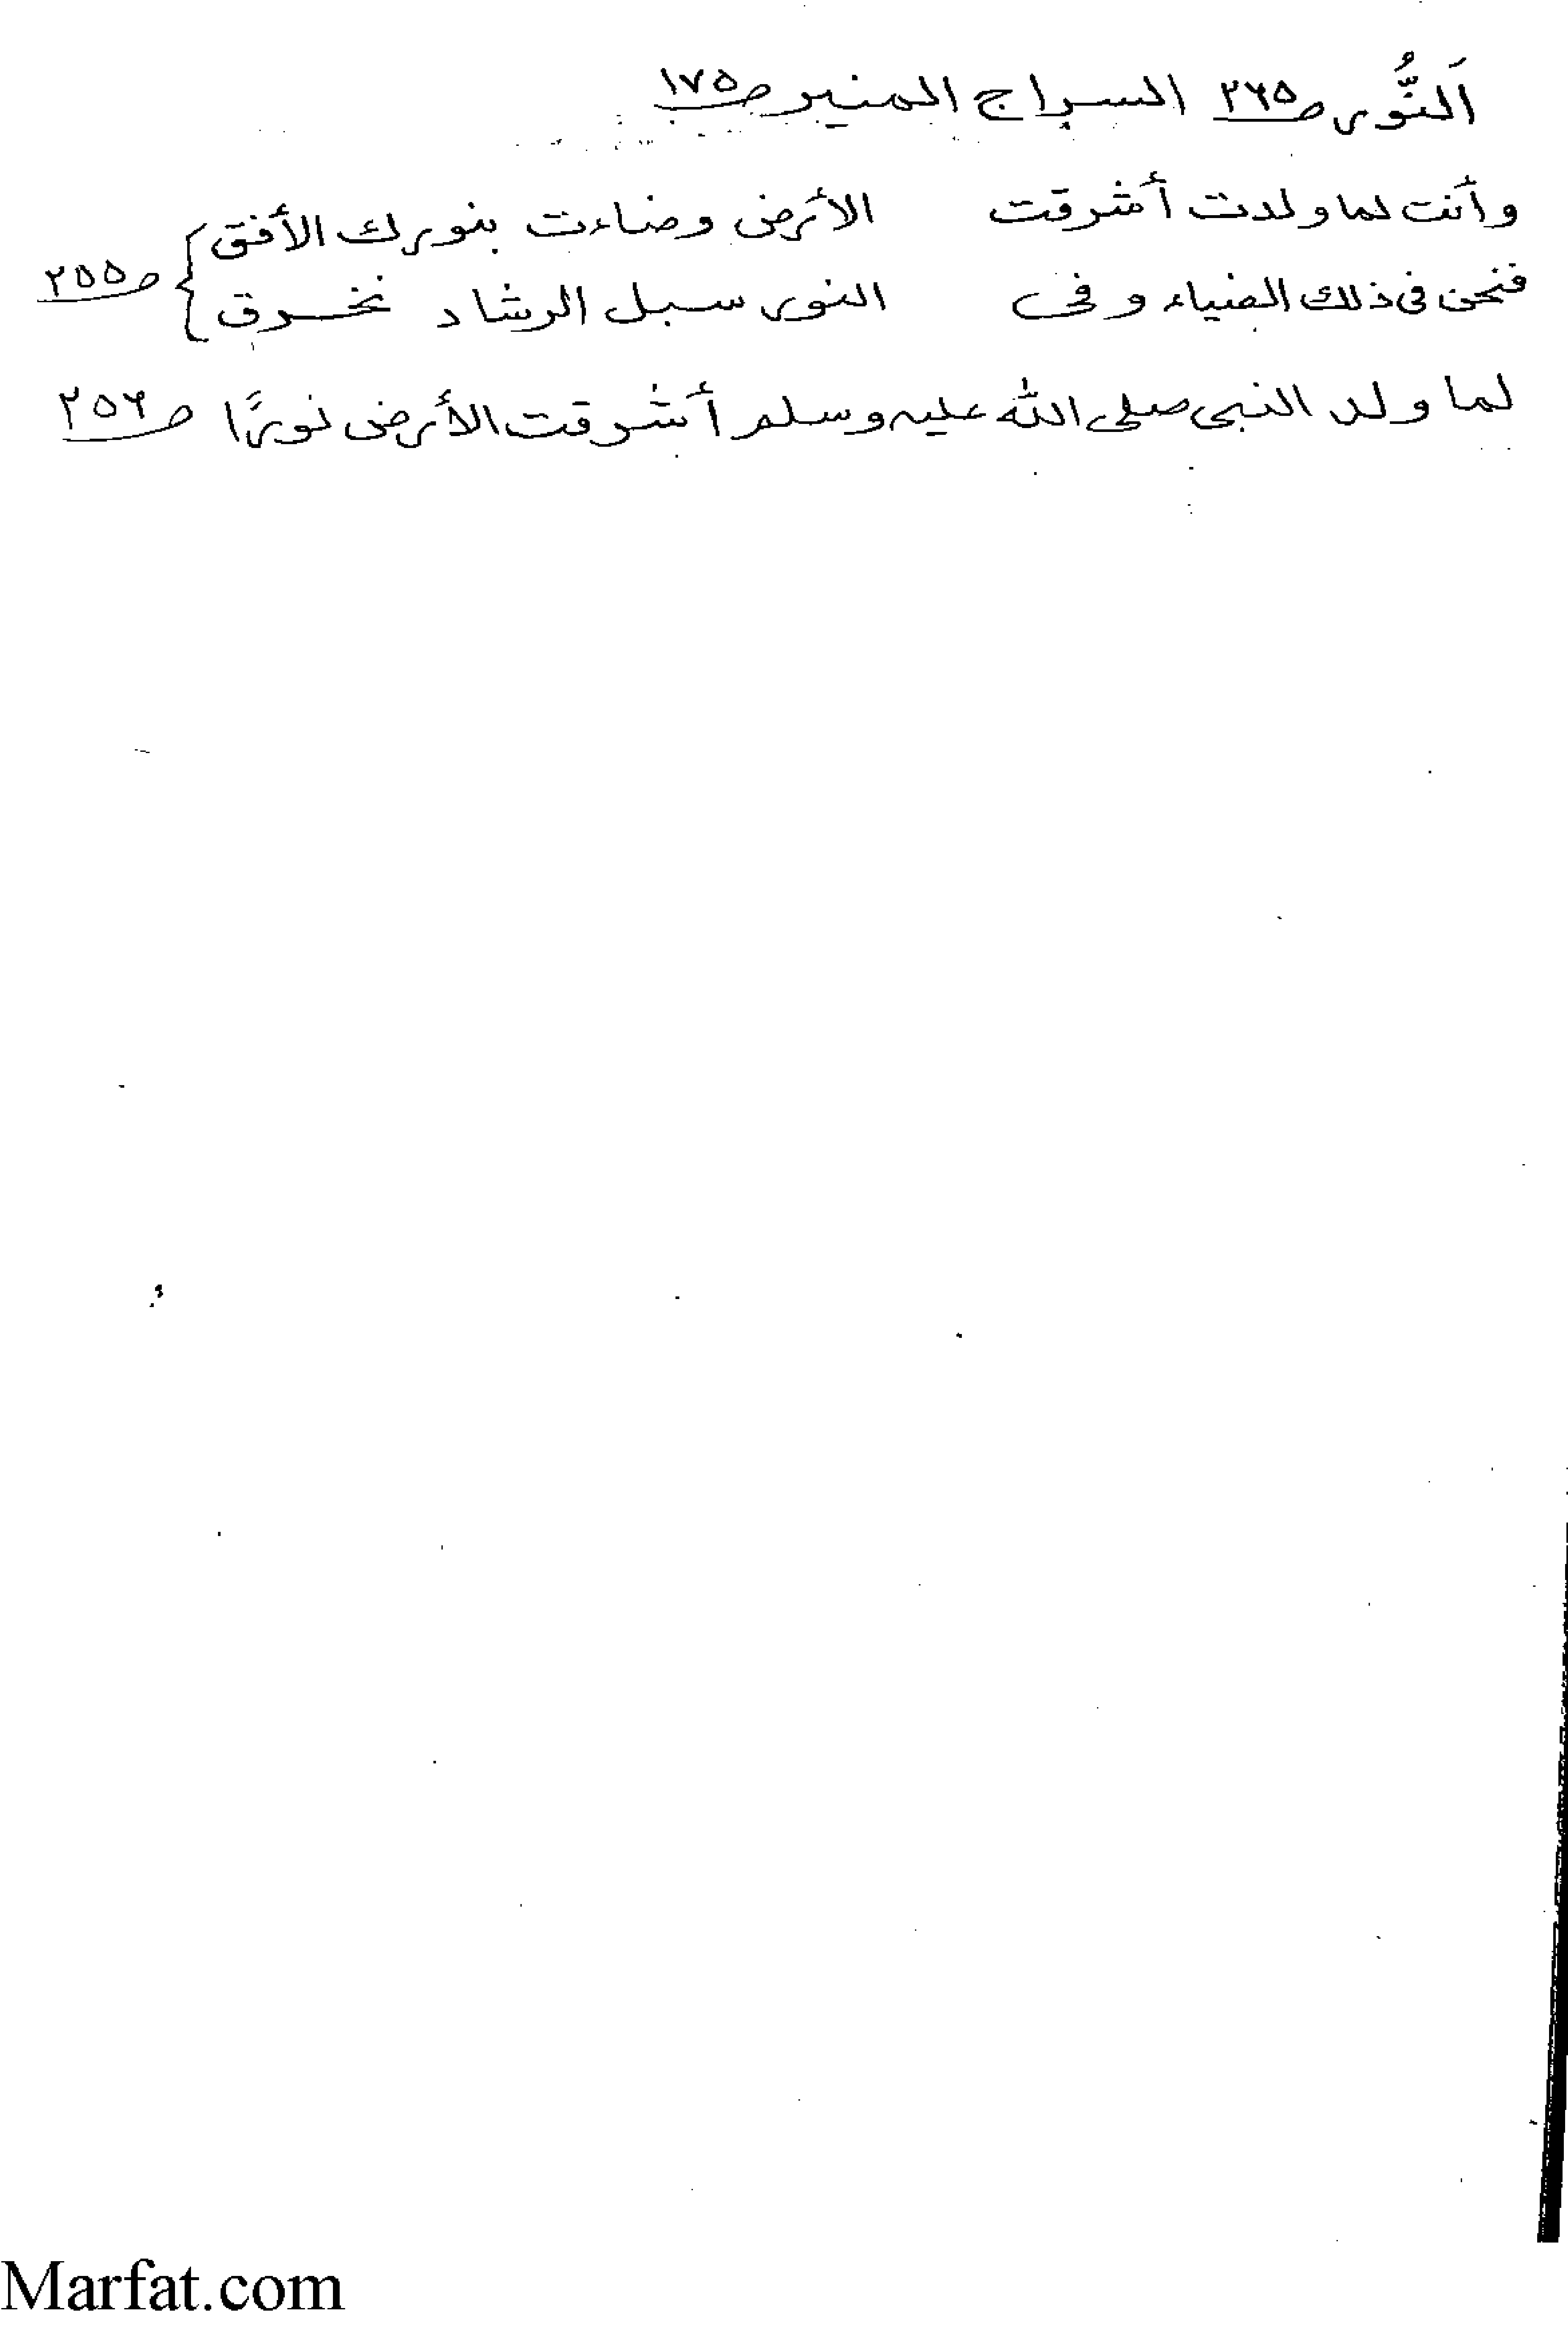 اَلنُّور ص٢٦٥ السراج المنير ص١٧٥
وأنت لما ولدت أشرقت الأرض وضاءت بنورك الأفق
فنحن فى ذلك الضياء وفى النور سبل الرشاد نخرق } ص٢٥٥
لما ولد النبى صلى الله عليه وسلم أشرقت الأرض نورًا ص٢٥٦
Marfat.com